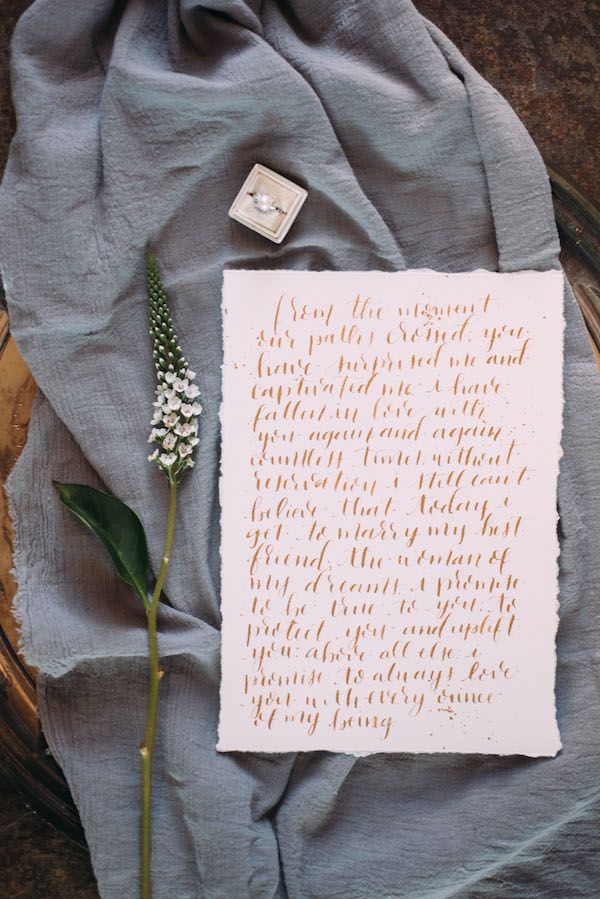 from the moment
our paths crossed, you
have surprised me and
captivated me. i have
fallen in love with
you again and again
countless times without
reservation. i still can't
believe that today i
get to marry my best
friend, the woman of
my dreams. i promise
to be true to you, to
protect you and uplift
you. above all else, i
promise to always love
you with every ounce
of my being